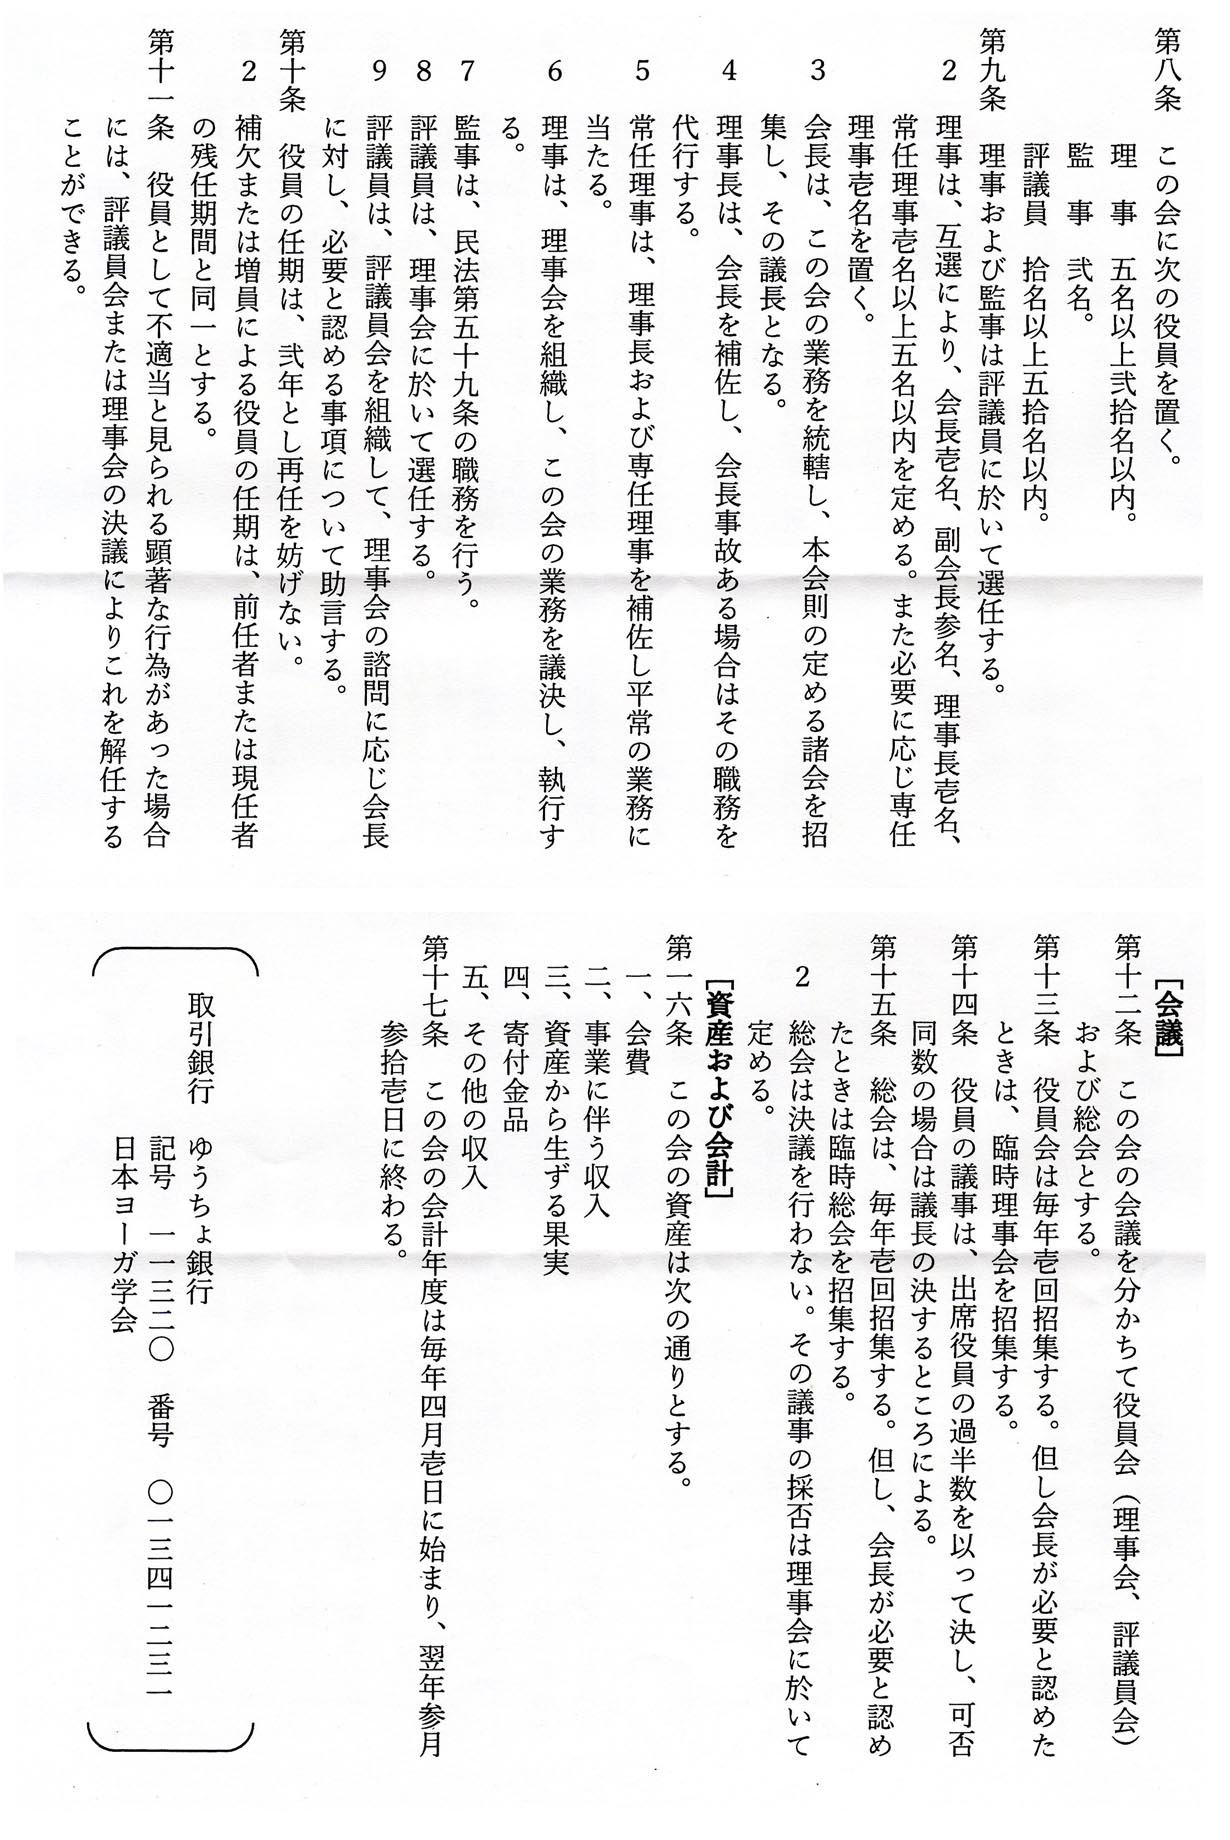 第八条　この会に次の役員を置く。
理　事　五名以上弐拾名以内。
監　事　弐名。
評議員　拾名以上五拾名以内。
第九条　理事および監事は評議員に於いて選任する。
2　理事は、互選により、会長壱名、副会長参名、理事長壱名、
常任理事壱名以上五名以内を定める。また必要に応じ専任
理事壱名を置く。
3　会長は、この会の業務を統轄し、本会則の定める諸会を招
集し、その議長となる。
4　理事長は、会長を補佐し、会長事故ある場合はその職務を
代行する。
5　常任理事は、理事長および専任理事を補佐し平常の業務に
当たる。
6　理事は、理事会を組織し、この会の業務を議決し、執行す
る。
7　監事は、民法第五十九条の職務を行う。
8　評議員は、理事会に於いて選任する。
9　評議員は、評議員会を組織して、理事会の諮問に応じ会長
に対し、必要と認める事項について助言する。
第十条　役員の任期は、弐年とし再任を妨げない。
2　補欠または増員による役員の任期は、前任者または現任者
の残任期間と同一とする。
第十一条　役員として不適当と見られる顕著な行為があった場合
には、評議員会または理事会の決議によりこれを解任する
ことができる。
［会議］
第十二条　この会の会議を分かちて役員会（理事会、評議員会）
および総会とする。
第十三条　役員会は毎年壱回招集する。但し会長が必要と認めた
ときは、臨時理事会を招集する。
第十四条　役員の議事は、出席役員の過半数を以って決し、可否
同数の場合は議長の決するところによる。
第十五条　総会は、毎年壱回招集する。但し、会長が必要と認め
たときは臨時総会を招集する。
2　総会は決議を行わない。その議事の採否は理事会に於いて
定める。
［資産および会計］
第一六条　この会の資産は次の通りとする。
一、会費
二、事業に伴う収入
三、資産から生ずる果実
四、寄付金品
五、その他の収入
第十七条　この会の会計年度は毎年四月壱日に始まり、翌年参月
参拾壱日に終わる。
取引銀行　ゆうちょ銀行
記号　一一三二〇　番号　〇一三四一二三一
日本ヨーガ学会